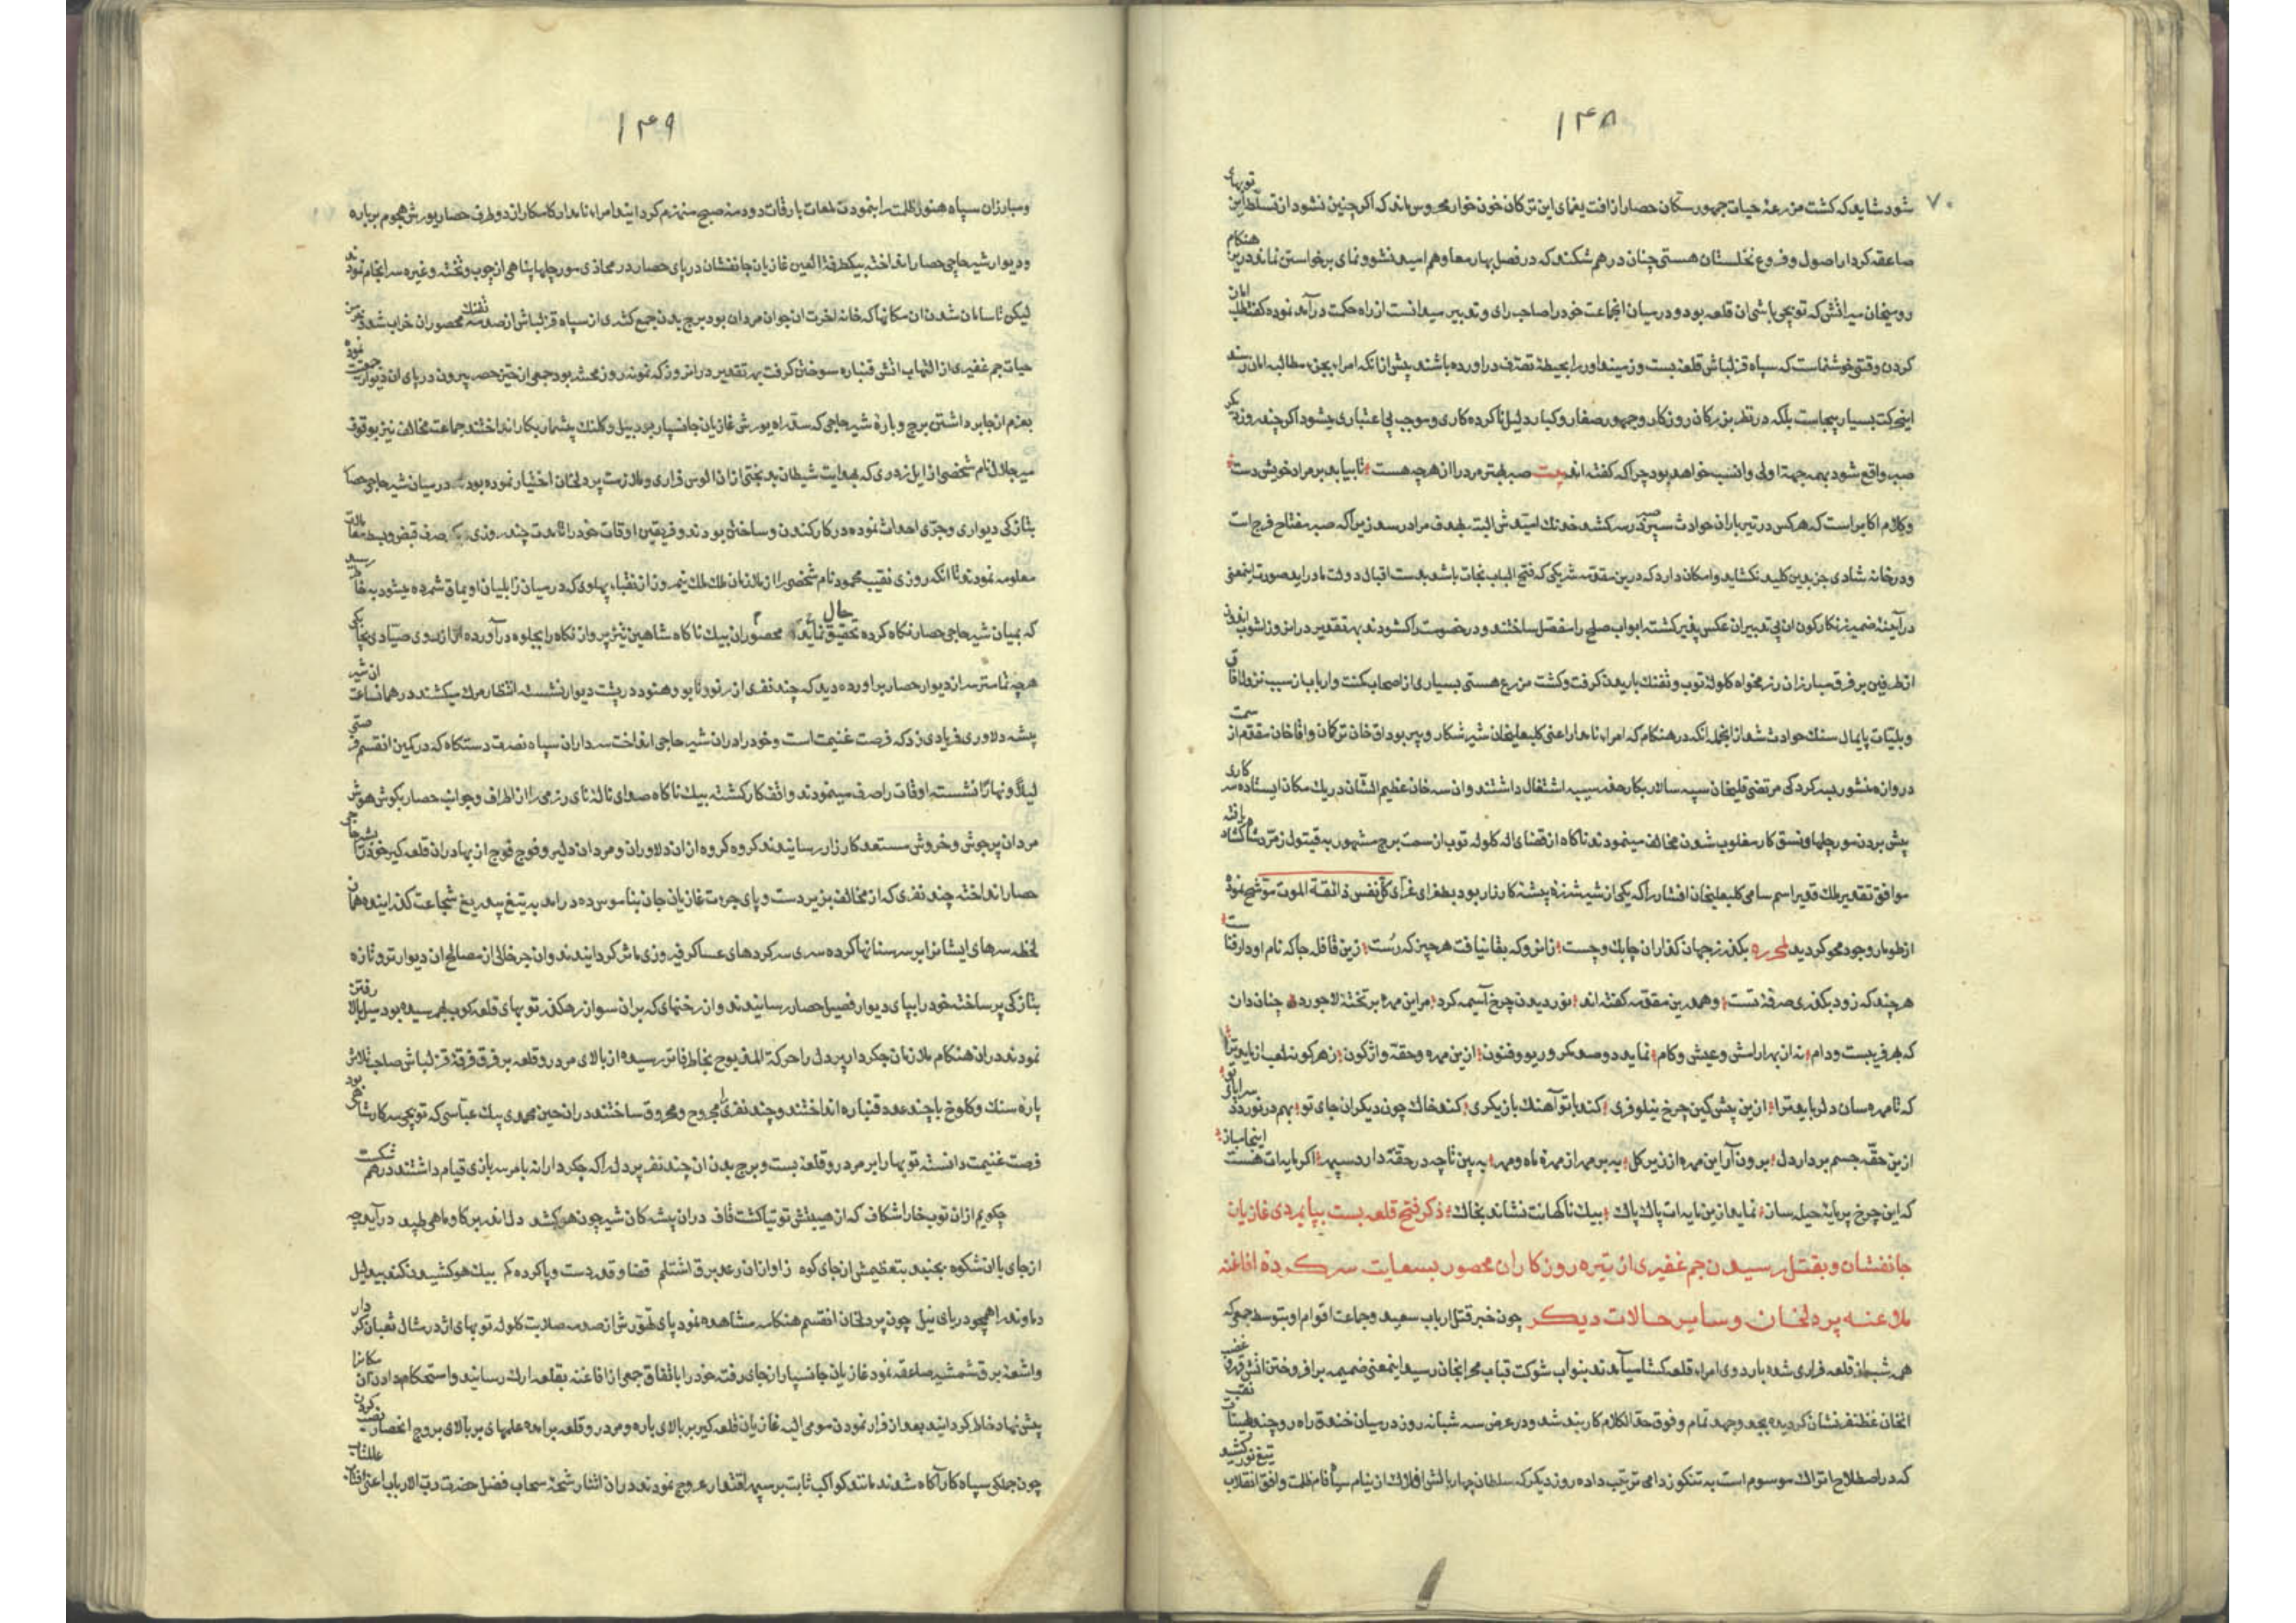 ۱۴۸
۷۰
شود شاید که کشت مزرعهٔ حیات جمهور سکان حصار از افت یغمای این ترکان خون خوار محروس ماند که اکر چنین نشود از تسلط این توبهای
صاعقه کردار اصول و فروع نخلستان هستی چنان در هم شکند که در فصل بهار معاد هم امید نشو و نمای برخواستن نماند درین هنکام
که توپچی باشی ان قلعه بود و در میان انجماعت خود را صاحب رای و تدبیر میدانست از راه حکمت در آمده نموده کفت طلب امان
کردن وقتی خوشنماست که سپاه قزلباش قلعه بست و زمینداور را بحیطهٔ تصرف در اورده باشند پیش از انکه امراء مطالبه امان
اینحرکت بسیار بیجاست بلکه در نظر بزرکان روزکار و جمهور صغار و کبار دلیل ناکرده کاری و موجب بی اعتباری میشود اکر چند روز دیکر
صبر واقع شود بهمه جهة اولی و انسب خواهد بود چرا که کفته اند بیت صبر بهتر مرد را از هر چه هست تا بیابد بر مراد خویش دست
و کلام اکابر است که هر کس در تیر باران حوادث سپر صبر در سر کشد خدنك امیدش البته بهدف مراد رسد زیرا که صبر مفتاح فرج است
و در خانه شادی جز بدین کلید نکشاید و امکان دارد که درین مقدمه شریکی که فتح الباب نجات باشد بدست اقبال دولت ما در اید صورت اینمعنی
در آینهٔ ضمیر زنکار کون ان بی تدبیران عکس پذیر کشته ابواب صلح را منفصل ساختند و در خصومت را کشودند بهر تقدیر در انروز اشوب
از طرفین بر فرق مبارزان رزمخواه کلولهٔ توب و تفنك باریدن کرفت و کشت مزرع هستی بسیاری از اصحاب کنت و ارباب از سبب نزول افات
و بلیات پایمال سنك حوادث شد از انجمله انکه در هنکام که امراء نامدار اعنی کلبعلیخان شیر شکار و پیر بوداق خان ترکان و اقا خان مقدم از سمت
دروازه منشور بسرکردکی مرتضی قلیخان سپه سالار بکار حفر سیبه اشتغال داشتند و ان سه خان عظیم الشان در یك مکان ایستاده
پیش بردن مورچلها و نسق کار مغلوب شدن مخالف مینمودند ناکاه از قضای اله کلوله توب از سمت برج مشهور
موافق تقدیر ملك قدیر اسم سامی کلبعلیخان افشار را که یکی از شیر شرزه پیشهٔ کارزار بود بطغرای غرآی کل نفس ذائقة الموت موشح نموده
از طومار وجود محو کردید لمحرره بکذر ز جهان کذران چابك و چست زانرو که بقا نیافت هر چیز که رست زین قافله جا که نام او دار فناست
هر چند که زود بکذری صرفهٔ تست و هم درین مقدمه کفته اند نوردیدن چرخ آسیمه کرد مر این مهره بر تختهٔ لاجورد چنان دان
که بهر فریبست و دام نه از بهر ارامش و عیش و کام نماید دو صد مکر و ریو و فنون ازین مهره و حقهٔ واژکون
که تا مهره سان دل رباید ترا ازین پیش کین چرخ نیلوفری کند با تو آهنك بازیکری کند خاك چون دیکران جای تو بهم در نوردد سراپای تو
ازین حقهٔ جسم بردار دل برون آر این مهره از زیر کل ببر مهر از مهرهٔ ماه و مهر ببین تا چه در حقهٔ دارد سپهر اکر مایه ات هست اینجا میان
که این چرخ پر مایهٔ حیله سان نماید ازین مایه ات پاك پاك بیك ناکهانت نشاند بخاك ذکر فتح قلعه بست بپایمردی غازیان
جانفشان و بقتل رسیدن جم غفیری از تیره روزکاران محصور بسعایت سرکردهٔ افاغنه
ملاعنه پردلخان و سایر حالات دیکر چون خبر قتل ارباب سعید و جماعت اقوام او بتوسط جمعی که
همه شب از قلعه فراری شده باردوی امراء قلعه کشا میآمدند بنواب شوکت قباب محرابخان رسید اینمعنی ضمیمه بر افروختن اتش غضب
انخان غضنفر نشان کردیده بجد و جهد تمام و فوق حد الکلام کاربند شد و در عرض سه شبانه روز در میان خندق راه رو چند نقب
که در اصطلاح اتراك موسوم است به تنکوز دامی ترتیب داده روز دیکر که سلطان چهار بالش افلاك از نیام سیاه فام ظلمت و افق انقلاب تیغ نور کشید
۱۴۹
و مبارزان سپاه هنوز ظلمت را بنمودن لمعات بارقات دودمه صبح منهزم کردانیدند امراء نامدار کامکار از دو طرف حصار یورش هجوم بر باره
و دیوار شیرحاجی حصار انداخته بیکطرفة العین غازیان جانفشان در پای حصار در محاذی مورچلها پناهی از چوب و تخته و غیره سرانجام نمودند
لیکن تا سامان شدن ان مکانها که خانه اخرت ان جوان مردان بود برج بدن جمع کثیری از سپاه قزلباش از صدمه تفنك محصوران خراب شد
حیات جم غفیری از التهاب اتش قنباره سوختن کرفت بهر تقدیر در انروز که نمونه روز محشر بود جمعی از حین حصر بیرون در پای ان دیوار جمعیت نموده
بعزم از جا برداشتن برج و بارهٔ شیرحاجی که سد راه یورش غازیان جانسپار بود بیل و کلنك بیشمار بکار انداختند جماعت مخالف نیز بوقوف
میر جلال نام شخصی از ایل زوری که بهدایت شیطان بدبختی از ان الوس فراری و ملازمت پردلخان اختیار نموده بود در میان شیرحاجی حصار
بتازکی دیواری و جری احداث نموده در کار کندن و ساختن بودند و فریقین اوقات خود را تا مدت چند روزی صرف قبض و بسط مقالات
معلومه نمودند تا انکه روزی نقیب محمود نام شخصی را از ملازمان ملك ملك نیمروز از نقباء پهلوی که در میان زابلیان اویماق شمرده میشود بخاطر رسید
که بمیان شیرحاجی حصار نکاه کرده تحقیق حال محصوران نماید بیك ناکاه شاهین تیز پرواز نکاه را بجلوه در آورده
هر چه تمامتر سر از دیوار حصار بر اورده دید که چند نفری از در پشت دیوار نشسته انتظار مرك میکشند در همان ساعت ان شیر
بیشه دلاوری فریادی زد که فرصت غنیمت است و خود را در ان شیرحاجی انداخت سرداران سپاه نصرت دستکاه که در کمین انقسم فرصتی
لیلاً و نهاراً نشسته اوقات را صرف مینمودند واقف کار کشته بیك ناکاه صدای نالهٔ نای رزمی را از اطراف و جوانب حصار بکوش هوش
مردان پر جوش و خروش مستعد کارزار رسانیدند کروه کروه از ان دلاوران و مردان دلیر و فوج فوج از بهادران قلعه کیر خود را بشیرحاجی
حصار انداخته چند نفری که از مخالف بزبر دست و پای جرءت غازیان جان بناموس ده در امد به تیغ بیدریغ شجاعت کذرانیدند همان
لحظه سرهای ایشانرا بر سر سنانها کرده سری سرکردهای عساکر فیروزی ماثر کردانیدند و ان جر خالی از مصالح ان دیوار تر و تازه
بتازکی پر ساخته خود را بپای دیوار فصیل حصار رسانیدند و از رخنهای که بران سو از رهکذر توبهای قلعه کوب بهم رسیده بود میل بالا رفتن
نمودند در ان هنکام ملازمان جکردار پردل را حرکة المذبوح بخاطر فاتر رسیده از بالای مردرو قلعه بر فرق فرقهٔ قزلباش صاحب تلاش
پاره سنك و کلوخ با چند عدد قنباره انداختند و چند نفری را مجروح و محروق ساختند در ان حین مهدی بیك عباسی که توپچی سرکار شاهی بود
فرصت غنیمت دانسته توبها را بر مردرو قلعه بست و برج بدن ان چند نفر پردل را که جکردارانه بامر سربازی قیام داشتند در هم شکست
چکویم از ان توب خارا شکاف که از هیبتش توتیا کشت قاف در ان بیشه کان شیر چون هو کشد درآید
از جای با ان شکوه بجنبد بتعظیمش از جای کوه ز اواز ان رعد برق اشتلم قضا و قدر دست و پا کرده کم بیك هو کشیدن کند بیدلیل
دماوند را همچو دریای نیل چون پردلخان انقسم هنکامه مشاهده نمود پای تهورش از صدمه صلابت کلوله توبهای اژدر مثال ثعبان کردار
و اشعهٔ برق شمشیر صاعقه نمود غازیان جانسپار از جای رفته خود را باتفاق جمعی از افاغنه بقلعه ارك رسانید و استحکام دادن ان مکانرا
پیش نهاد خاطر کردانید بعد از فرار نمودن مومی الیه غازیان قلعه کیر بر بالای باره و مردرو قلعه برامده علمهای بر بالای بروج انحصار نصب کردن
چون جملکی سپاه کار آکاه شدند مانند کواکب ثابت بر سپهر اقتدار عروج نمودند در ان اثنا رشحهٔ سحاب فضل حضرت رب الارباب اعنی افتاب